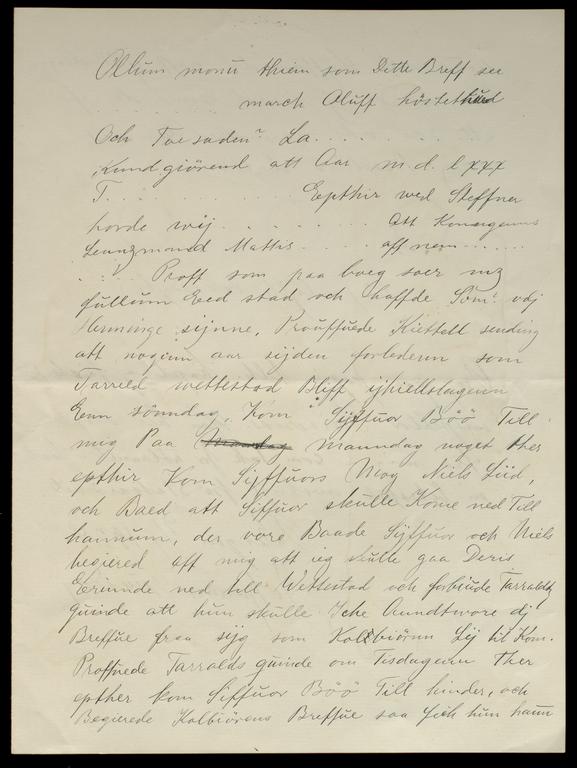 Ollum monu thiem som Dette Breff see
march Oluff höstethued
Och Toe saden" La. . . . . . . . .
Kund giörend att Aar m.d. lxxx
T. . . . . . . . . . Eepthir wed Steffner
horde wij . . . . . . . . . Att Konuguns
Leunzmannd Mattis . . . . aff nem. . . . . .
. . : . Proff som paa boeg soer mz
fullum Eed stad och haffde Som: vdj
Herminge sijnne, Prouffuede Kiettell sending
att noginn aar sijden forledenn som
Tarreld wettestad Bleff ijhiellslagenn
Enn sönndag, Kom Sijffuor Böö Till
mig Paa manndag noget ther
epthir Kom Sijffuors Mog Niels Lüd,
och Baed att Siffuor skulle Kome ned Till
hannum, der vore Baade Sijffuor och Niels
begiered aff mig att ieg skulle gaa Deris
Erinnde ned till Wettestad och forbiude Tarraldz
quinde att hun skulle Iche Anndtwore dj
Breffue fraa sijg som Kolbiörnn Lij til Kom.
Proffuede Tarralds quinde om Tisdagenn Ther
epther kom Siffuor Böö Till hinder, och
Begierede Kolbiörens Breffue saa fich hun hann